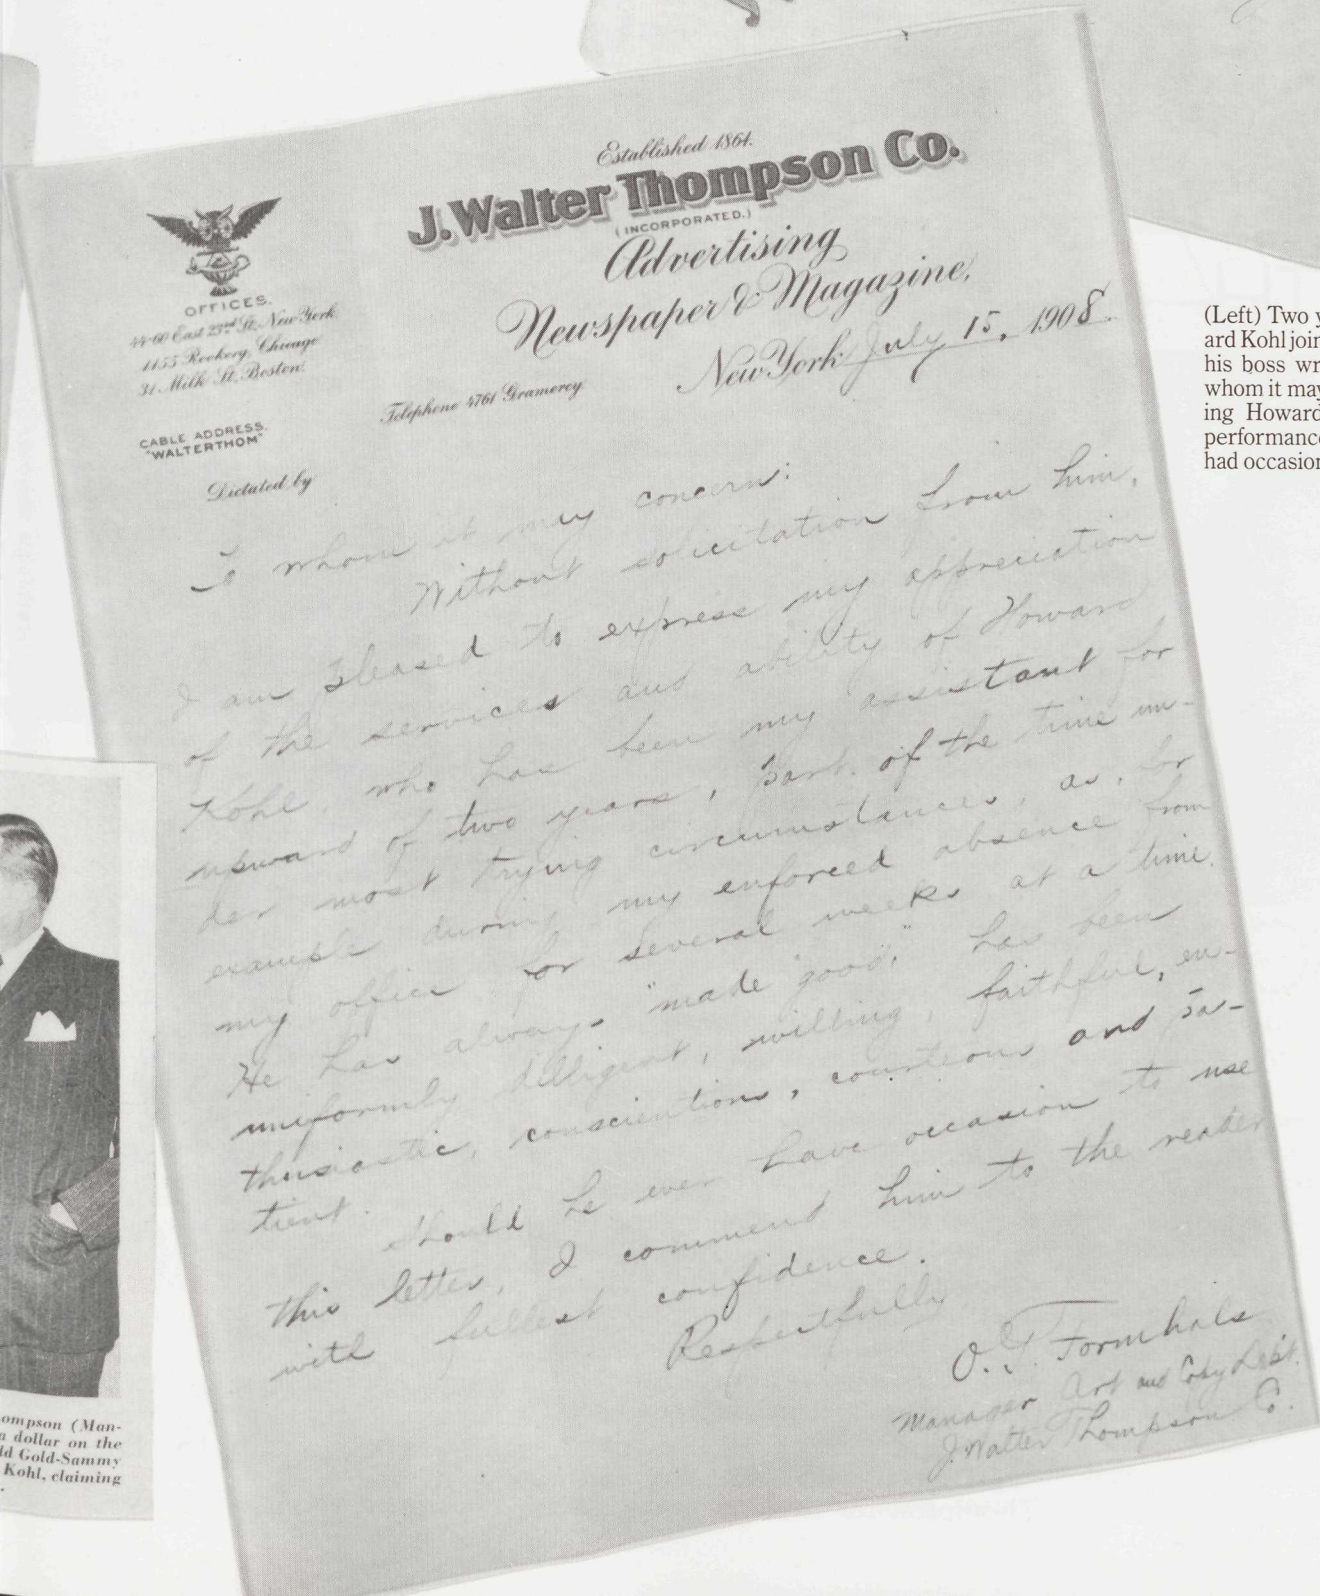 Established 1864.
J. Walter Thompson Co.
(INCORPORATED.)
Advertising
Newspaper & Magazine,
New York July 15, 1908.
OFFICES.
44-60 East 23rd St, New York.
1155 Rookery, Chicago
31 Milk St, Boston.
Telephone 4761 Gramercy
CABLE ADDRESS.
"WALTERTHOM"
Dictated by
To whom it may concern:
Without solicitation from him,
I am pleased to express my appreciation
of the services and ability of Howard
Kohl, who has been my assistant for
upward of two years, part of the time un-
der most trying circumstances, as, for
example during my enforced absence from
my office for several weeks at a time.
He has always "made good," has been
uniformly diligent, willing, faithful, en-
thusiastic, conscientious, courteous and pa-
tient.
Should he ever have occasion to use
this letter, I commend him to the reader
with fullest confidence.
Respectfully
O. T. Formhals
Manager Art and Copy Dept.
J. Walter Thompson Co.
(Left) Two y
ard Kohl join
his boss wr
whom it may
ing Howard
performance
had occasion
ompson (Man-
a dollar on the
ld Gold-Sammy
Kohl, claiming
.